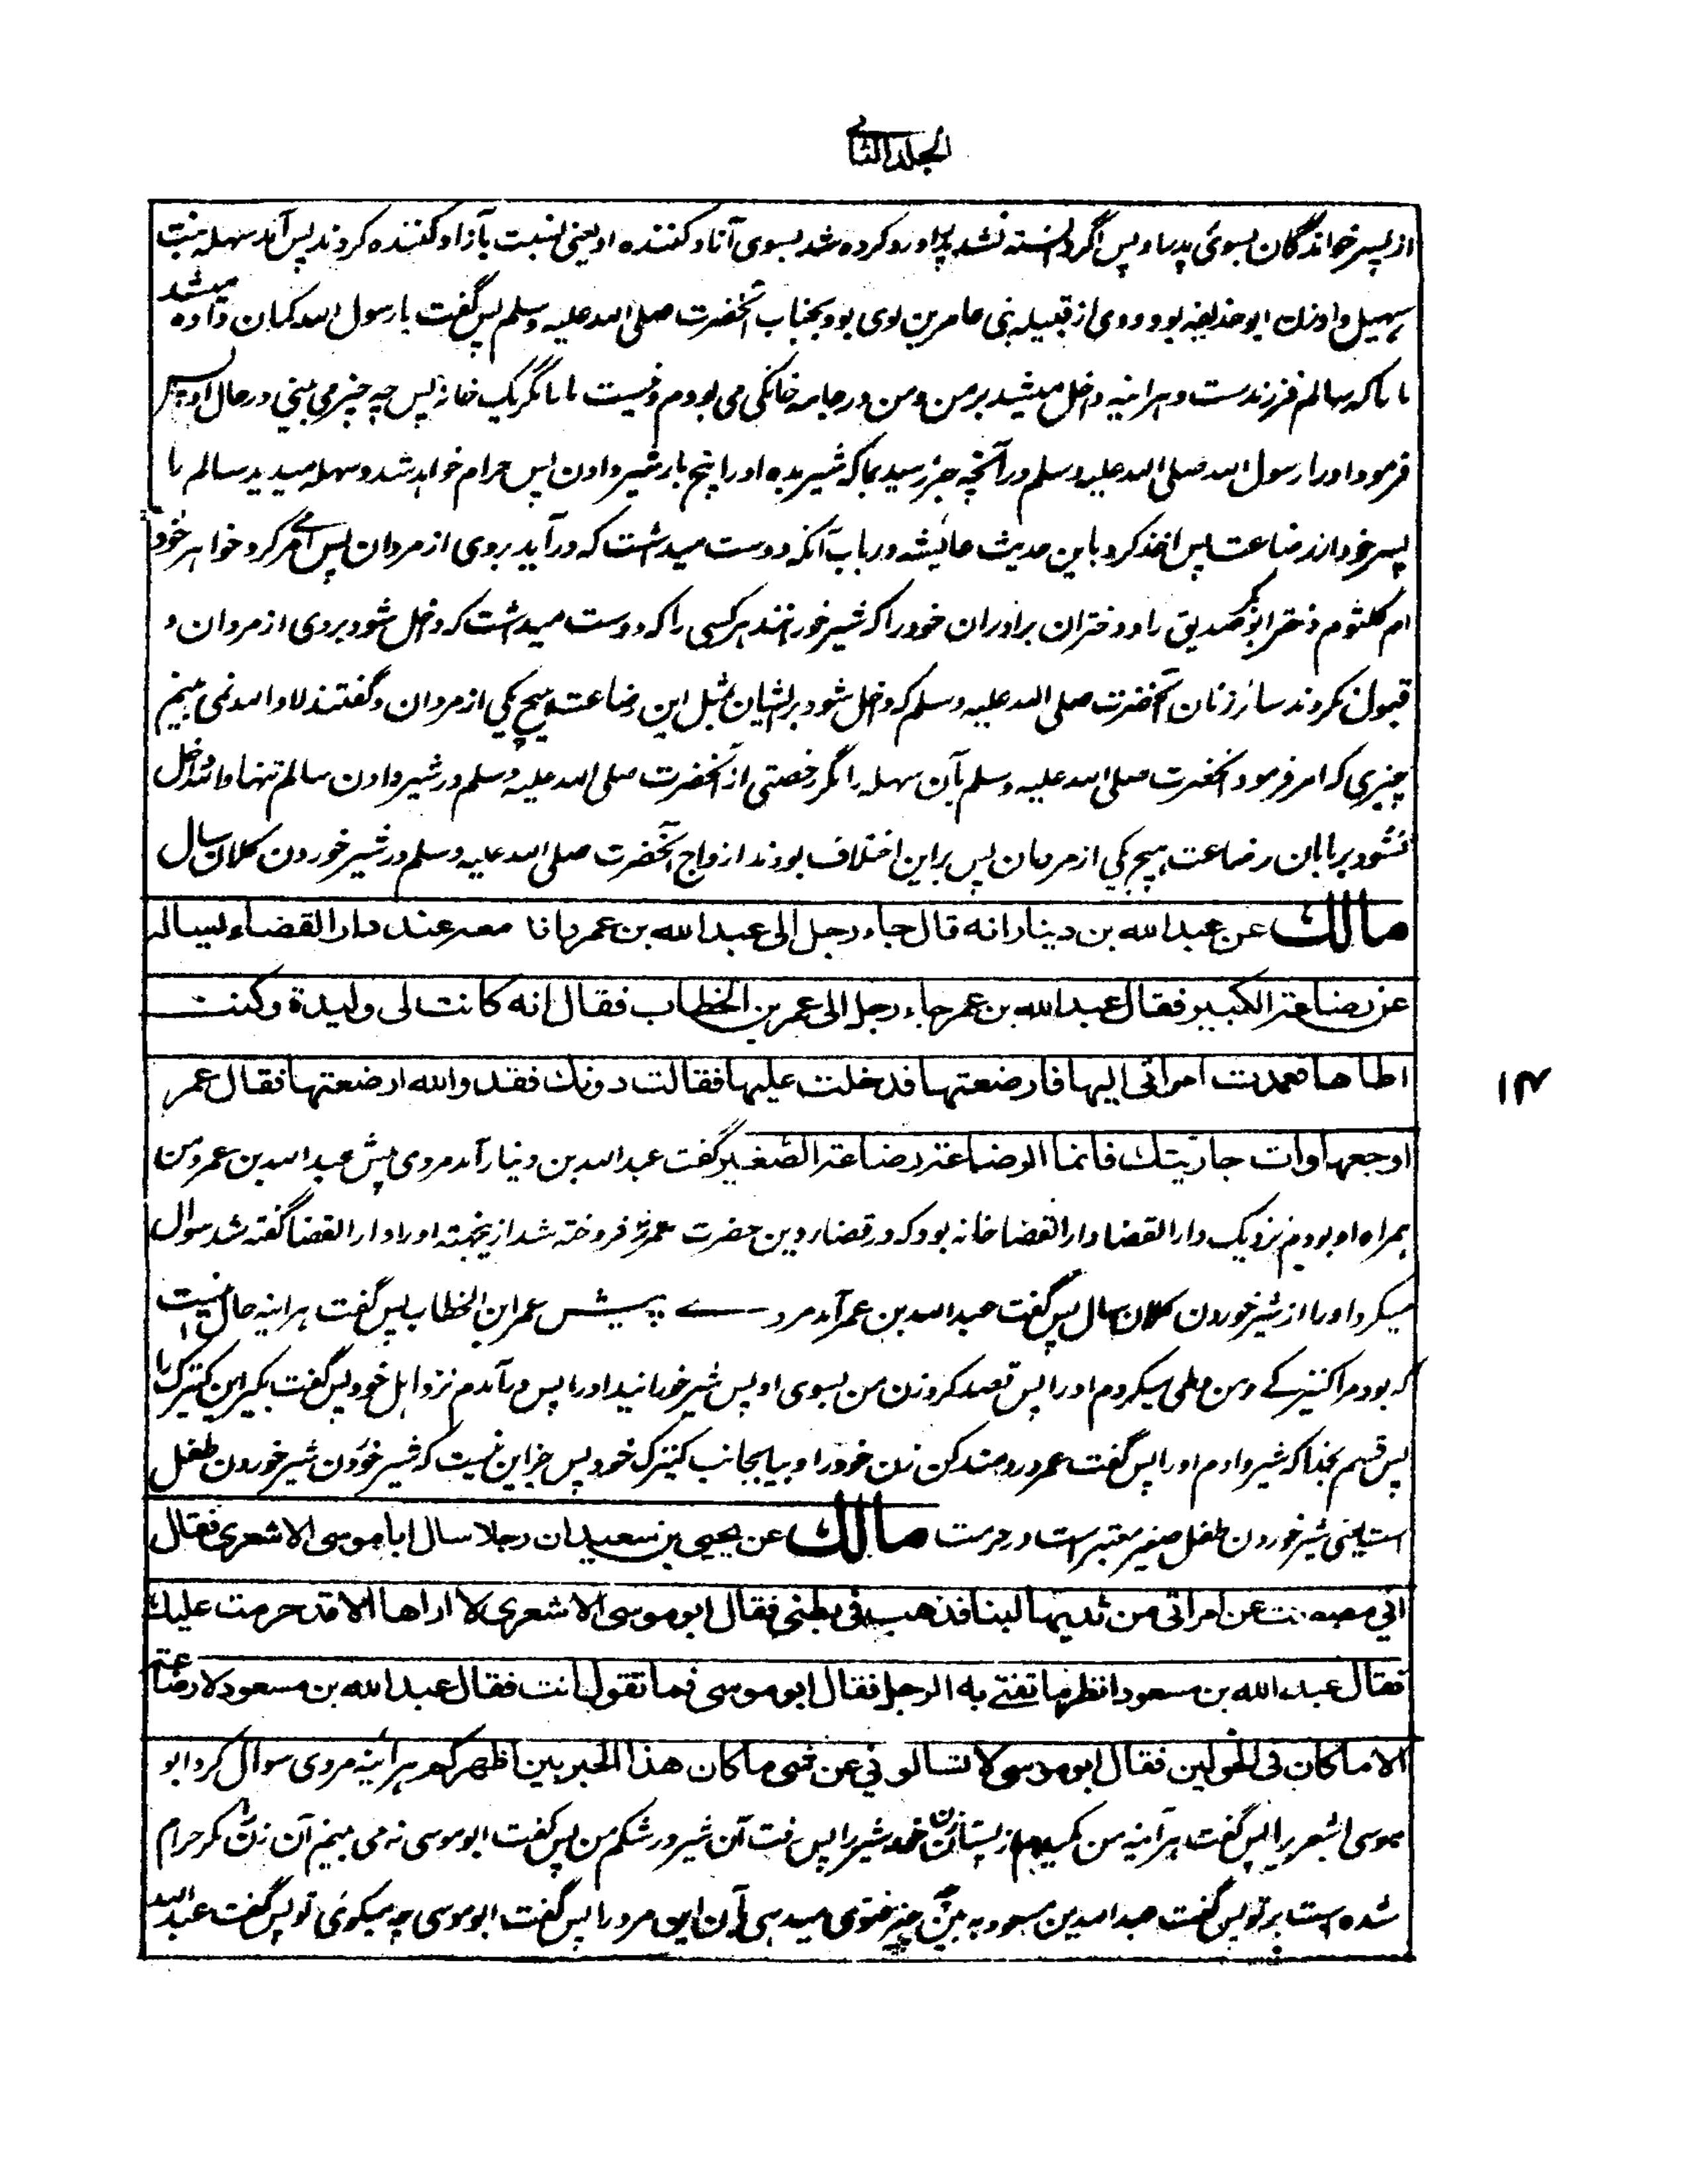 الجلد الثانی
از پسر خواندگان بسوئ پدر او پس اگر دانسته نشد پدر او رد کرده شد بسوی آزاد کننده او یعنی نسبت بآزاد کننده کردند پس آمد سهله بنت
سهیل و او زن ابو حذیفه بود و وی از قبیله بنی عامر بن لوی بود بجناب آنحضرت صلی الله علیه وسلم پس گفت یا رسول الله گمان داده میشد
ما را که سالم فرزندست و هرآئینه داخل میشد بر من و من در جامه خانگی می بودم و نیست ما را مگر یک خانه پس چه چیز می بینی در حال او پس
فرمود او را رسول الله صلی الله علیه وسلم در آنچه خبر رسید بما که شیر بده او را پنج بار شیر دادن پس حرام خواهد شد و سهله میدید سالم را
پسر خود از رضاعت پس اخذ کرد باین حدیث عایشه در باب آنکه دوست میداشت که در آید بر وی از مردان پس امر می کرد خواهر خود
ام کلثوم دختر ابوبکر صدیق را و دختران برادران خود را که شیر خورانند هر کسی را که دوست میداشت که داخل شود بر وی از مردان و
قبول نکردند سائر زنان آنحضرت صلی الله علیه وسلم که داخل شود بر ایشان بمثل این رضاعت هیچ یکی از مردان و گفتند لا والله نمی بینیم
چیزی که امر فرمود آنحضرت صلی الله علیه وسلم بآن سهله را مگر رخصتی از آنحضرت صلی الله علیه وسلم در شیر دادن سالم تنها والله داخل
نشود بر ما بآن رضاعت هیچ یکی از مردمان پس بر این اختلاف بودند ازواج آنحضرت صلی الله علیه وسلم در شیر خوردن کلان سال
مالك عن عبد الله بن دینار انه قال جاء رجل الی عبد الله بن عمر وانا معه عند دار القضاء یساله
عن رضاعة الکبیر فقال عبد الله بن عمر جاء رجل الی عمر بن الخطاب فقال انه کانت لی ولیدة وکنت
اطاها فعمدت امراتی الیها فارضعتها فدخلت علیها فقالت دونك فقد والله ارضعتها فقال عمر
۱۳
اوجعها وات جاریتك فانما الرضاعة رضاعة الصغیر گفت عبد الله بن دینار آمد مردی پیش عبد الله بن عمر و من
همراه او بودم نزدیک دار القضا دار القضا خانه بود که در قضاء دین حضرت عمر فروخته شد ازینجهته او را دار القضا گفته شد سوال
میکرد او را از شیر خوردن کلان سال پس گفت عبد الله بن عمر آمد مردے پیش عمر ابن الخطاب پس گفت هرآینه حال اینست
که بود مرا کنیزکے و من وطی میکردم او را پس قصد کرد زن من بسوی او پس شیر خورانید او را پس در آمدم نزد اهل خود پس گفت بگیر این کنیزک را
پس قسم بخدا که شیر دادم او را پس گفت عمر دردمند کن زن خود را و بیا بجانب کنیزک خود پس جز این نیست که شیر خوردن شیر خوردن طفل
است یعنی شیر خوردن طفل صغیر معتبر است در حرمت مالك عن یحیی بن سعید ان رجلا سال ابا موسی الاشعری فقال
انی مصصت عن امراتی من ثدیها لبنا فذهب فی بطنی فقال ابو موسی الاشعری لا اراها الا قد حرمت علیك
فقال عبد الله بن مسعود انظر ما تفتی به الرجل فقال ابو موسی فما تقول انت فقال عبد الله بن مسعود لا رضاعة
الا ما کان فی الحولین فقال ابو موسی لا تسالونی عن شی ما کان هذا الحبر بین اظهرکم هر آئینه مردی سوال کرد ابو
موسی اشعری را پس گفت هرآئینه من مکیدم از پستان زن خود شیر را پس رفت آن شیر در شکم من پس گفت ابو موسی نه می بینم آن زن را مگر حرام
شده است بر تو پس گفت عبد الله بن مسعود به بین چه چیز فتوی میدهی بآن این مرد را پس گفت ابو موسی چه میگوئی تو پس گفت عبد الله